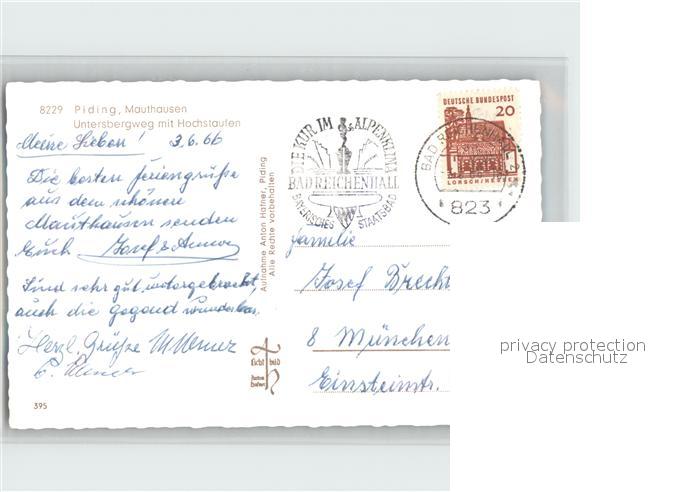 8229 Piding, Mauthausen
Untersbergweg mit Hochstaufen
Meine Lieben! 3.6.66
Die besten Feriengrüße
aus dem schönen
Mauthausen senden
Euch Josef &
Sind sehr gut untergebracht,
auch die gegend wunderbar.
Herzl. Grüße
395
Aufnahme Anton Hafner, Piding
Alle Rechte vorbehalten
licht bild
Anton Hafner
DIE KUR IM ALPENKLIMA
BAD REICHENHALL
BAYERISCHES STAATSBAD
DEUTSCHE BUNDESPOST
20
LORSCH/HESSEN
BAD REICHENHALL 2
823
Familie
Josef Brecht
8 München
Einsteinstr.
privacy protection
Datenschutz